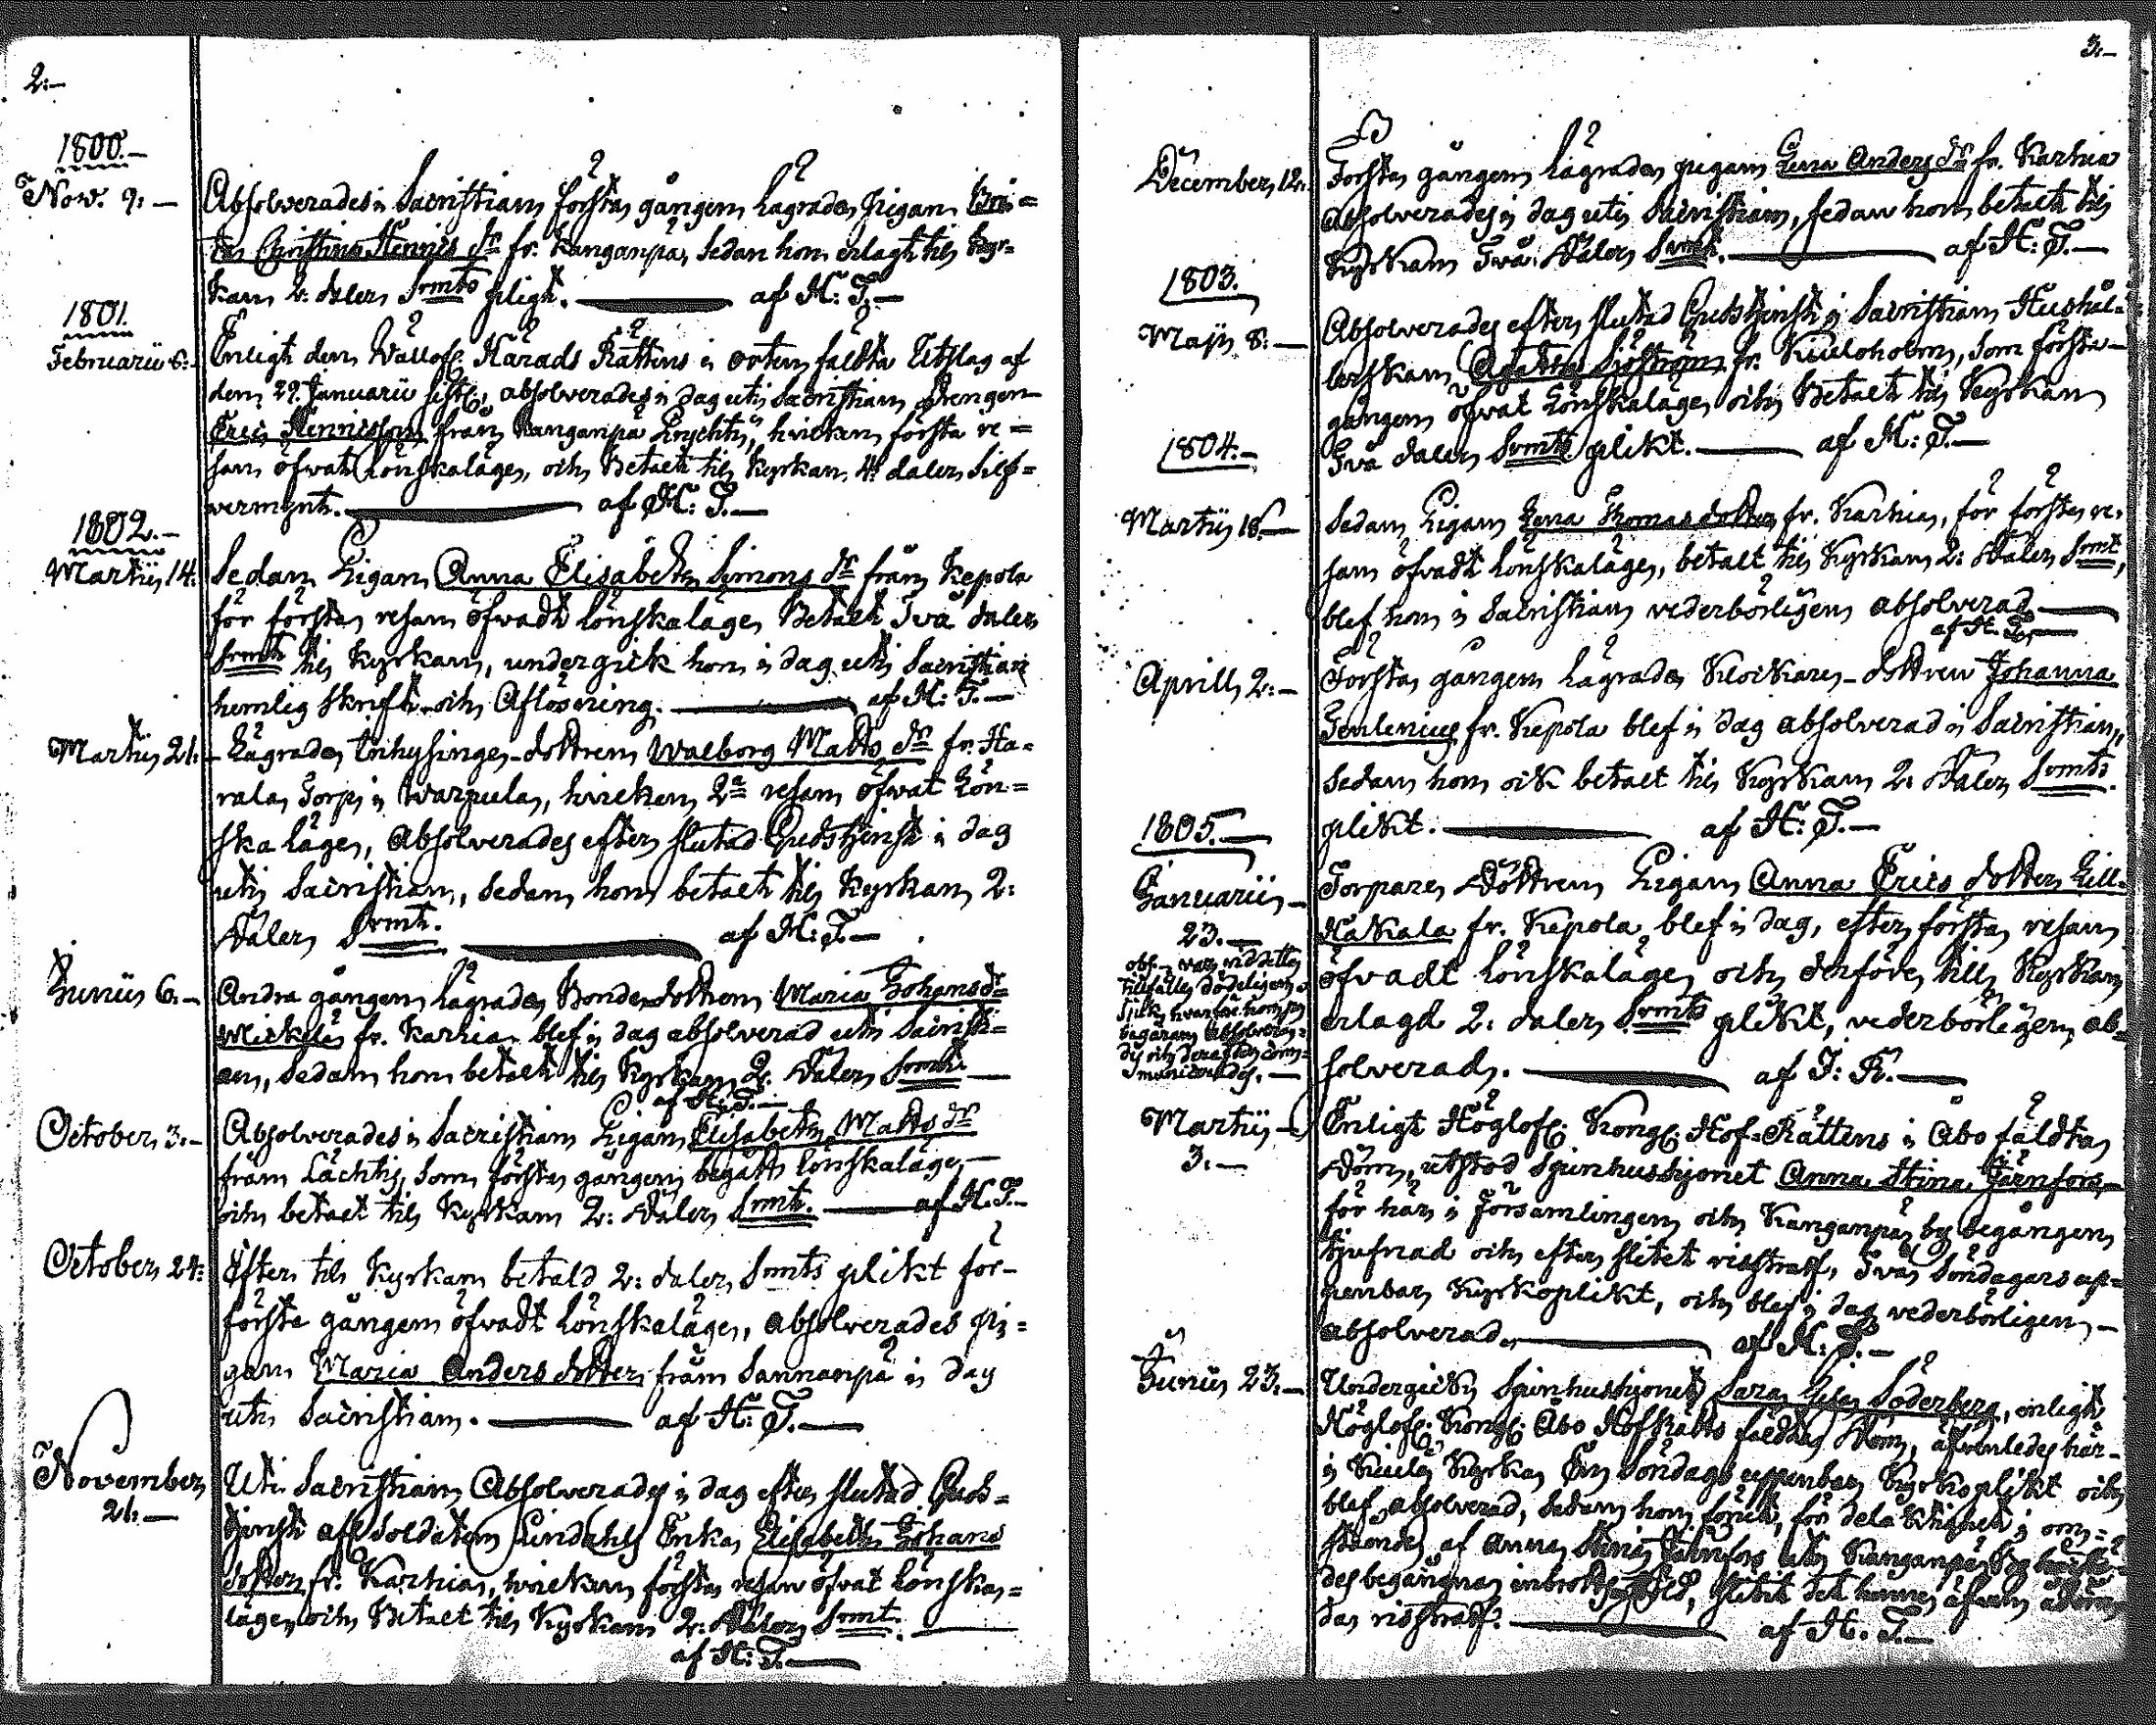 2:—
1800.—
Nov. 9:—
Absolverades i Sacristian första gången lägrade Pigan Bri=
ta Christina Hennics dr fr. Kanganpä, sedan hon erlagt til kyr=
kan 2: daler Srmts pligt. — af H: T.—
1801.
Februarii 8:—
Enligt den Vällofl. Härads Rättens i orten fälda Utslag af
den 29. Januarii sistl., absolverades i dag uti Sacristian Drengen
Eric Hennicsson från Kanganpä Knychti, hvicken första re=
san öfvat Lönskaläge, och Betalt til Kyrkan 4: daler Silf=
vermynt. — af H: T.—
1802.—
Martii 14:
Sedan Pigan Anna Elisabeth Simons dr från Kepola
för första resan öfvadt lönskaläge, Betalt Två daler
Srmt til Kyrkan, undergick hon i dag uti Sacristian
hemlig skrift och Aflösning. — af H: T.—
Martii 21:—
Lägrade Inhysinge-dottren Walborg Matts dr fr. Ha=
rala Torp i Warpula, hvicken 2a resan öfvat Lön=
ska läge, Absolverades efter slutad Gudstjenst i dag
uti Sacristian, sedan hon betalt til Kyrkan 2:
Daler Srmt. — af H: T.—
Junii 6.—
Andra gången lägrade Bonde-dottren Maria Johans dr
Mickelä fr. Karhia blef i dag absolverad uti Sacristi=
an, sedan hon betalt til Kyrkan 2: Daler Srmt.—
af H: T.—
October 3.—
Absolverades i Sacristian Pigan Elisabeth Matts dr
från Lächti, som första gången begått lönskaläge,—
och betalt til Kyrkan 2: Daler Srmt. — af H. T.—
October 24:
Efter til Kyrkan betald 2: daler Srmts plikt för—
första gången öfvadt lönskaläge, absolverades pi=
gan Maria Anders dotter från Sannanpä i dag
uti Sacristian. — af H: T.—
November
21:—
Uti Sacristian Absolverades i dag efter slutad Guds=
tjenst afl. Soldaten Lindahls Enka Elisabeth Johans
dotter fr. Karhia, hvicken första resan öfvat lönska=
läge, och Betalt til Kyrkan 2: Daler Srmt.—
af H: T.—
3:—
December 12.
Första gången lägrade pigan Lena Anders dr fr. Karhia
absolverades i dag uti Sacristian, sedan hon betalt til
Kyrkan Två Daler Srmt. — af H: T.—
1803.
Maji 8:—
Absolverades efter slutad Gudstjenst i Sacristian Hushål=
lerskan Agatha Sjöström fr. Kuuloholm, som första—
gången öfvat Lönskaläge, och Betalt til Kyrkan
Två daler Srmts plikt. — af H: T.—
1804.—
Martii 18.—
Sedan Pigan Lena Thomas dotter fr. Karhia, för första re=
san öfvadt Lönskaläge, betalt til Kyrkan 2: Daler Srmt,
blef hon i Sacristian vederbörligen absolverad.—
af H. T.—
Aprill 2:—
Första gången lägrade Klockare-dottren Johanna
fr. Kepola blef i dag absolverad i Sacristian,
sedan hon ock betalt til Kyrkan 2: Daler Srmts
plikt. — af H: T.—
1805.—
Januarii
23.—
obs.— var vid detta
tillfälle dödeligen
siuk, hvarföre hon på
begäran absolvera=
des och derefter com=
municerades.—
Torpare Dottren Pigan Anna Erics dotter Lill=
Hakala fr. Kepola, blef i dag, efter första resan
öfvadt lönskaläge, och derföre till Kyrkan
erlagd 2: daler Srmts plikt, vederbörligen ab=
solverad. — af J: R.—
Martii
3.—
Enligt Höglofl. Kongl. Hof-Rättens i Åbo fäldta
Dom, utstod Spinhushjonet Anna Stina Järnfors,—
för här i Församlingen och Kanganpä by begången
tjufnad och efter slitet risstraff, Två Söndagars up=
penbar Kyrkoplikt, och blef i dag vederbörligen—
absolverad. — af H: T.—
Junii 23.—
Undergick Spinhushjonet Sara Lisa Söderberg, enligt
Höglofl. Kongl. Åbo Hofrätts fäldta Dom, äfvenledes här—
i Kiula Kyrka En Söndags uppenbar Kyrkoplikt och
blef absolverad, sedan hon förut, för delaktighet i
af Anna Stina Järnfors uti Kanganpä by
des begångna inbrott, slitit det henne äfven
da risstraff. — af H. T.—